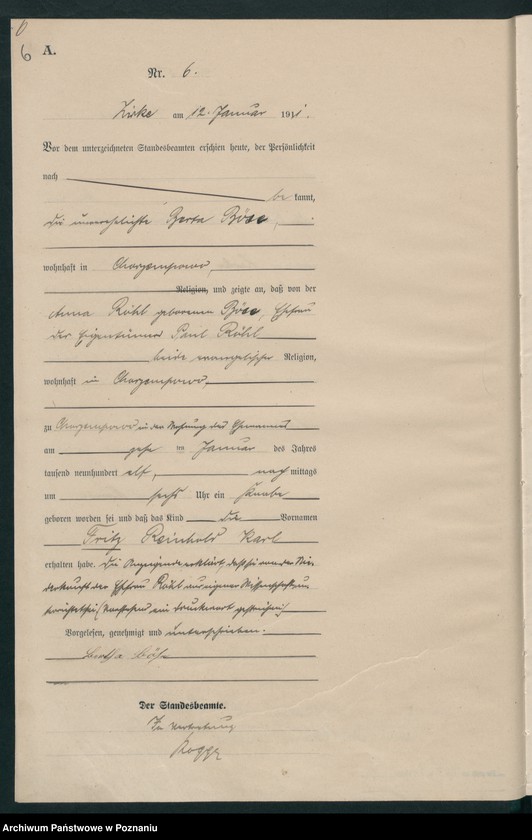 6
A.
Nr. 6.
Zirke am 12. Januar 1911.
Vor dem unterzeichneten Standesbeamten erschien heute, der Persönlichkeit
nach
be kannt,
die unverehelichte Berta Böse,
wohnhaft in
Religion, und zeigte an, daß von der
Anna Röhl geborenen Böse, Ehefrau
des Eigentümers Paul Röhl
beide evangelischer Religion,
wohnhaft in
zu in der Wohnung des Ehemannes
am ten Januar des Jahres
tausend neunhundert elf, nach mittags
um sechs Uhr ein Knabe
geboren worden sei und daß das Kind die Vornamen
Fritz Reinhold Karl
erhalten habe. Die Anzeigende erklärt, daß sie von der Nie-
derkunft der Ehefrau Röhl aus eigener Wissenschaft un-
terrichtet sei. (Vorstehend ein Druckwort gestrichen)
Vorgelesen, genehmigt und unterschrieben.
Der Standesbeamte.
In Vertretung
Archiwum Państwowe w Poznaniu